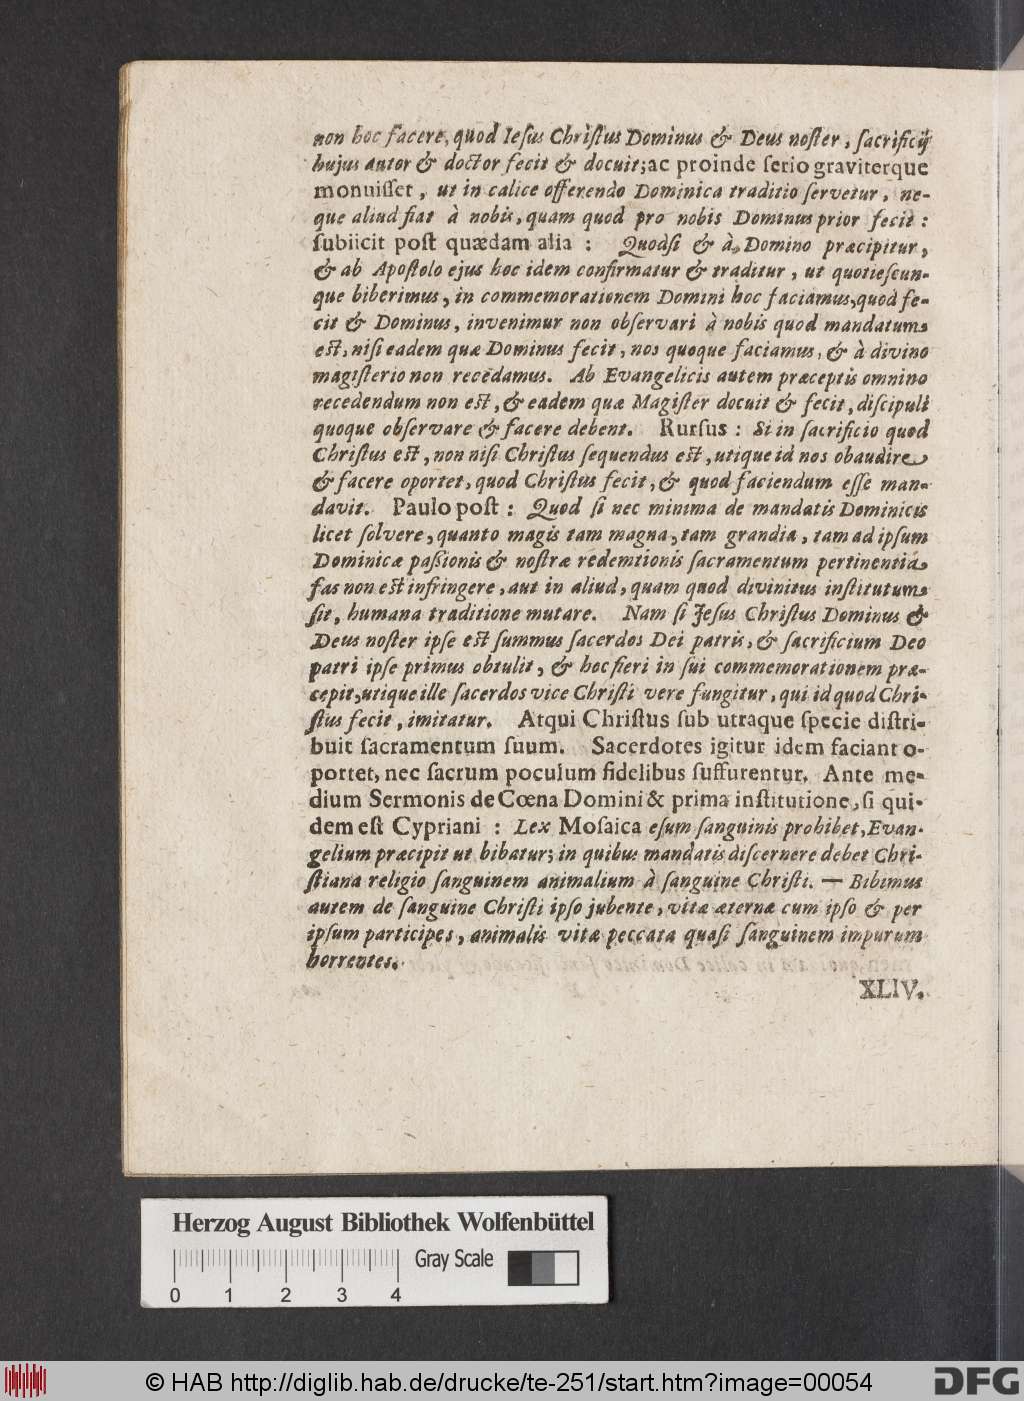 non hoc facere, quod Iesus Christus Dominus & Deus noster, sacrificij
hujus autor & doctor fecit & docuit; ac proinde serio graviterque
monuisset, ut in calice offerendo Dominica traditio servetur, ne-
que aliud fiat à nobis, quam quod pro nobis Dominus prior fecit:
subiicit post quædam alia: Quodsi & à Domino præcipitur,
& ab Apostolo ejus hoc idem confirmatur & traditur, ut quotiescun-
que biberimus, in commemorationem Domini hoc faciamus, quod fe-
cit & Dominus, invenimur non observari à nobis quod mandatum
est, nisi eadem quæ Dominus fecit, nos quoque faciamus, & à divino
magisterio non recedamus. Ab Evangelicis autem præceptis omnino
recedendum non est, & eadem quæ Magister docuit & fecit, discipuli
quoque observare & facere debent. Rursus: Si in sacrificio quod
Christus est, non nisi Christus sequendus est, utique id nos obaudire
& facere oportet, quod Christus fecit, & quod faciendum esse man-
davit. Paulo post: Quod si nec minima de mandatis Dominicis
licet solvere, quanto magis tam magna, tam grandia, tam ad ipsum
Dominicæ passionis & nostræ redemtionis sacramentum pertinentia
fas non est infringere, aut in aliud, quam quod divinitus institutum
sit, humana traditione mutare. Nam si Jesus Christus Dominus &
Deus noster ipse est summus sacerdos Dei patris, & sacrificium Deo
patri ipse primus obtulit, & hoc fieri in sui commemorationem præ-
cepit, utique ille sacerdos vice Christi vere fungitur, qui id quod Chri-
stus fecit, imitatur. Atqui Christus sub utraque specie distri-
buit sacramentum suum. Sacerdotes igitur idem faciant o-
portet, nec sacrum poculum fidelibus suffurentur. Ante me-
dium Sermonis de Cœna Domini & prima institutione, si qui-
dem est Cypriani: Lex Mosaica esum sanguinis prohibet, Evan-
gelium præcipit ut bibatur; in quibus mandatis discernere debet Chri-
stiana religio sanguinem animalium à sanguine Christi. — Bibimus
autem de sanguine Christi ipso jubente, vitæ æternæ cum ipso & per
ipsum participes, animalis vitæ peccata quasi sanguinem impurum
horrentes.
XLIV.
Herzog August Bibliothek Wolfenbüttel
Gray Scale
0 1 2 3 4
© HAB http://diglib.hab.de/drucke/te-251/start.htm?image=00054
DFG